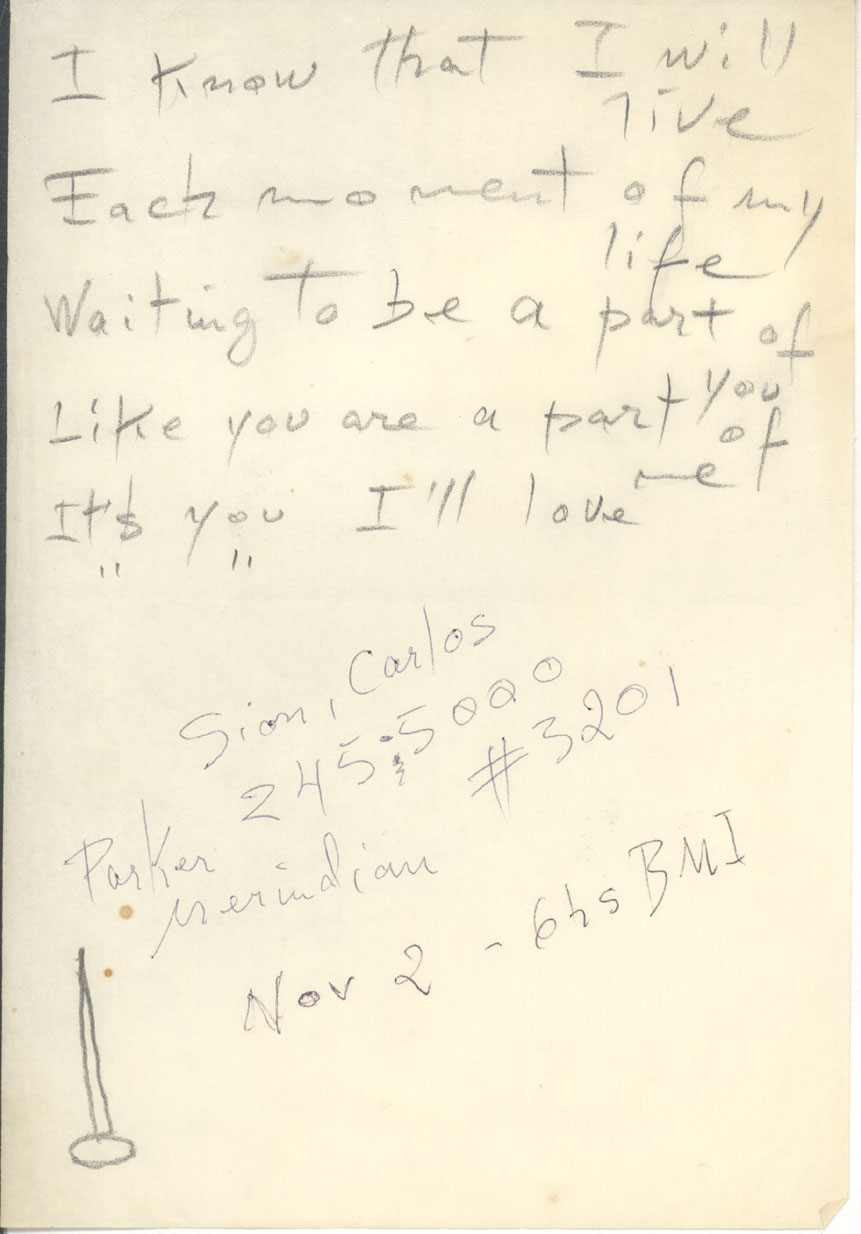 I know that I will
live
Each moment of my
life
Waiting to be a part of
you
Like you are a part of
me
It's you I'll love
" "
Sion, Carlos
245:5000
#3201
Parker
Merindian
Nov 2 - 6hs BMI